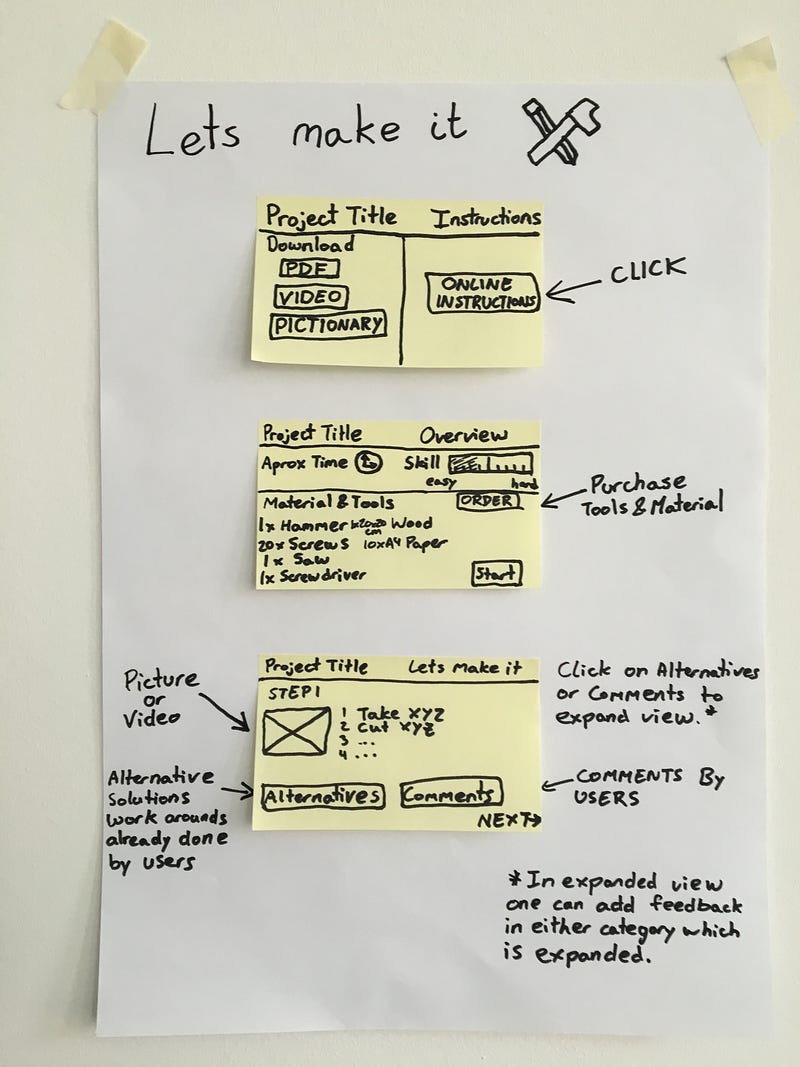 Lets make it
Project Title Instructions
Download
PDF
VIDEO
PICTIONARY
ONLINE
INSTRUCTIONS
CLICK
Project Title Overview
Aprox Time Skill
easy hard
Material & Tools ORDER
1x Hammer 1x20x20 cm Wood
20x Screws 10xA4 Paper
1x Saw
1x Screwdriver
Start
Purchase
Tools & Material
Project Title Lets make it
STEP 1
1 Take XYZ
2 Cut XYZ
3 ...
4 ...
Alternatives Comments
NEXT
Picture
or
Video
Alternative
Solutions
work arounds
already done
by users
Click on Alternatives
or Comments to
expand view.*
COMMENTS By
USERS
*In expanded view
one can add feedback
in either category which
is expanded.